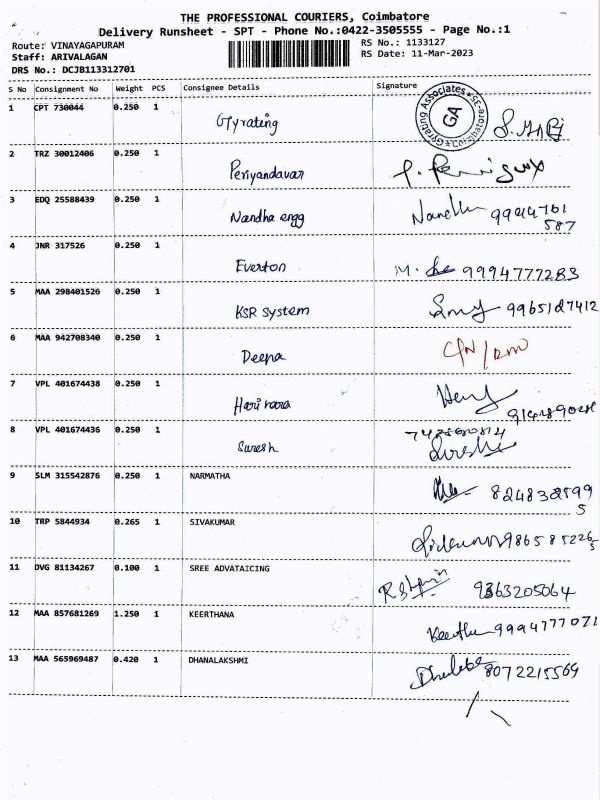 THE PROFESSIONAL COURIERS, Coimbatore
Delivery Runsheet - SPT - Phone No.:0422-3505555 - Page No.:1
Route: VINAYAGAPURAM RS No.: 1133127
Staff: ARIVALAGAN RS Date: 11-Mar-2023
DRS No.: DCJB113312701
S No Consignment No Weight PCS Consignee Details Signature
1 CPT 730044 0.250 1 Gyrating
Gyrating Associates Coimbatore-35 GA
2 TRZ 30012406 0.250 1 Periyandavar
3 EDQ 25588439 0.250 1 Nandha engg Nandhu 9994761
587
4 JNR 317526 0.250 1 Everton M. 9994777283
5 MAA 298401526 0.250 1 KSR System 9965127412
6 MAA 942708340 0.250 1 Deepa
7 VPL 401674438 0.250 1 Hari
8 VPL 401674436 0.250 1 Suresh
Suresh
9 SLM 315542876 0.250 1 NARMATHA 824832599
5
10 TRP 5844934 0.265 1 SIVAKUMAR 986585226
5
11 DVG 81134267 0.100 1 SREE ADVATAICING 9363205064
12 MAA 857681269 1.250 1 KEERTHANA Keerthu 9994777071
13 MAA 565969487 0.420 1 DHANALAKSHMI 8072215569